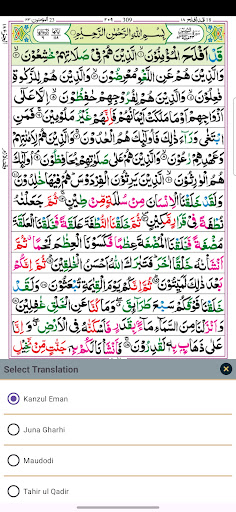 قد افلح ١٨
309
٣٠٩
المؤمنون 23
بِسْمِ اللّٰهِ الرَّحْمٰنِ الرَّحِيْمِ
قَدْ اَفْلَحَ الْمُؤْمِنُوْنَ الَّذِيْنَ هُمْ فِيْ صَلَاتِهِمْ خٰشِعُوْنَ
وَالَّذِيْنَ هُمْ عَنِ اللَّغْوِ مُعْرِضُوْنَ وَالَّذِيْنَ هُمْ لِلزَّكٰوةِ
فٰعِلُوْنَ وَالَّذِيْنَ هُمْ لِفُرُوْجِهِمْ حٰفِظُوْنَ اِلَّا عَلٰٓى
اَزْوَاجِهِمْ اَوْ مَا مَلَكَتْ اَيْمَانُهُمْ فَاِنَّهُمْ غَيْرُ مَلُوْمِيْنَ فَمَنِ
ابْتَغٰى وَرَآءَ ذٰلِكَ فَاُولٰٓئِكَ هُمُ الْعٰدُوْنَ وَالَّذِيْنَ هُمْ لِاَمٰنٰتِهِمْ
وَعَهْدِهِمْ رٰعُوْنَ وَالَّذِيْنَ هُمْ عَلٰى صَلَوٰتِهِمْ يُحَافِظُوْنَ اُولٰٓئِكَ
هُمُ الْوٰرِثُوْنَ الَّذِيْنَ يَرِثُوْنَ الْفِرْدَوْسَ هُمْ فِيْهَا خٰلِدُوْنَ
وَلَقَدْ خَلَقْنَا الْاِنْسَانَ مِنْ سُلٰلَةٍ مِّنْ طِيْنٍ ثُمَّ جَعَلْنٰهُ
نُطْفَةً فِيْ قَرَارٍ مَّكِيْنٍ ثُمَّ خَلَقْنَا النُّطْفَةَ عَلَقَةً فَخَلَقْنَا الْعَلَقَةَ
مُضْغَةً فَخَلَقْنَا الْمُضْغَةَ عِظٰمًا فَكَسَوْنَا الْعِظٰمَ لَحْمًا ثُمَّ
اَنْشَاْنٰهُ خَلْقًا اٰخَرَ فَتَبٰرَكَ اللّٰهُ اَحْسَنُ الْخٰلِقِيْنَ ثُمَّ اِنَّكُمْ
بَعْدَ ذٰلِكَ لَمَيِّتُوْنَ ثُمَّ اِنَّكُمْ يَوْمَ الْقِيٰمَةِ تُبْعَثُوْنَ وَلَقَدْ
خَلَقْنَا فَوْقَكُمْ سَبْعَ طَرَآئِقَ وَمَا كُنَّا عَنِ الْخَلْقِ غٰفِلِيْنَ
وَاَنْزَلْنَا مِنَ السَّمَآءِ مَآءً بِقَدَرٍ فَاَسْكَنّٰهُ فِي الْاَرْضِ وَاِنَّا
عَلٰى ذَهَابٍ بِهٖ لَقٰدِرُوْنَ فَاَنْشَاْنَا لَكُمْ بِهٖ جَنّٰتٍ مِّنْ نَّخِيْلٍ
Select Translation
Kanzul Eman
Juna Gharhi
Maudodi
Tahir ul Qadir